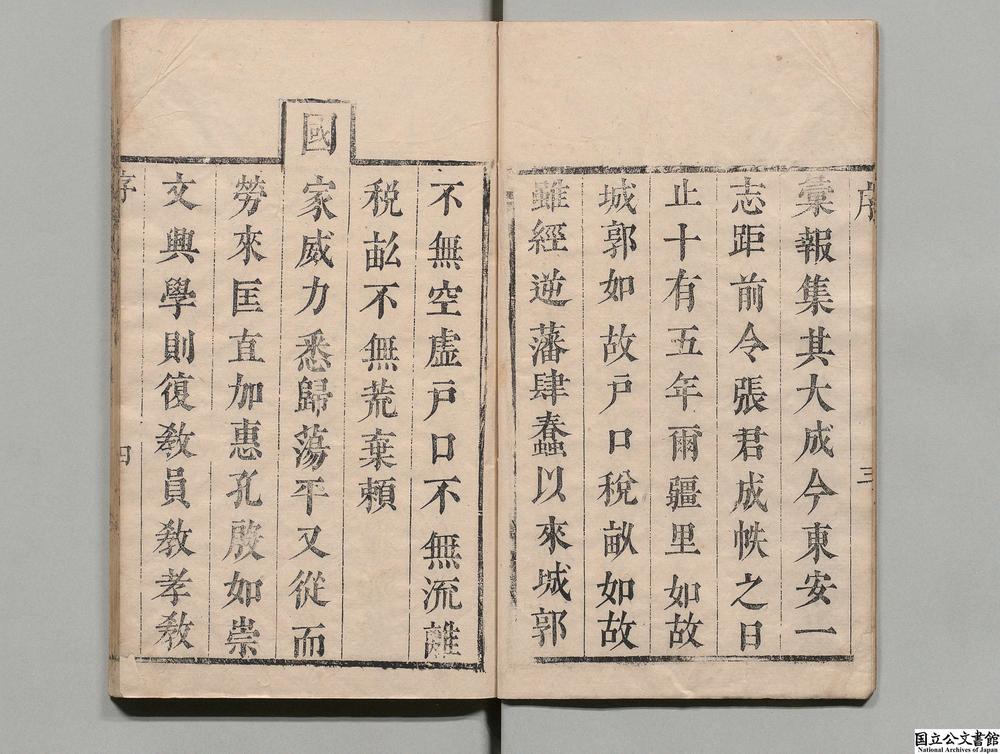 序
三
彙報集其大成今東安一
志距前令張君成帙之日
止十有五年爾疆里如故
城郭如故戶口稅畝如故
雖經逆藩肆蠢以來城郭
不無空虛戶口不無流離
税畝不無荒棄賴
國家威力悉歸蕩平又從而
勞來匡直加惠孔殷如崇
文興學則復教員教孝教
序
四
国立公文書館
National Archives of Japan